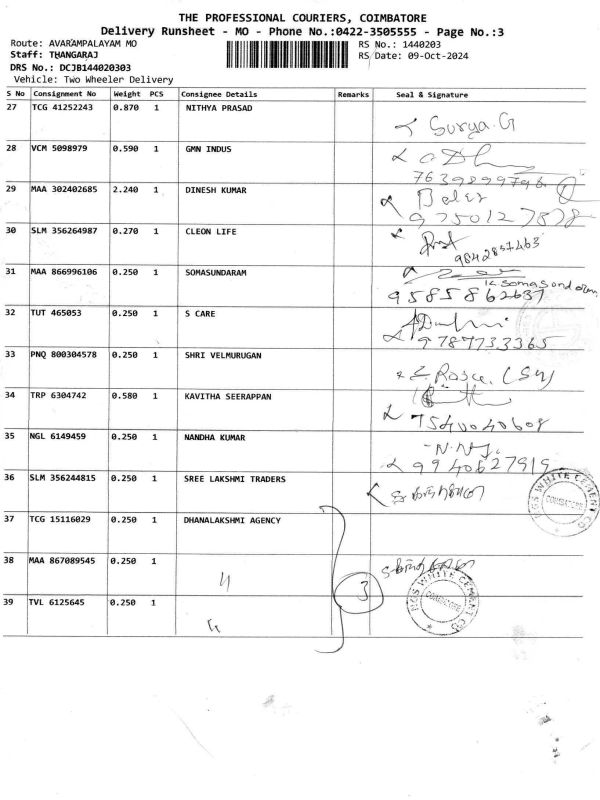 THE PROFESSIONAL COURIERS, COIMBATORE
Delivery Runsheet - MO - Phone No.:0422-3505555 - Page No.:3
Route: AVARAMPALAYAM MO
RS No.: 1440203
Staff: THANGARAJ
RS Date: 09-Oct-2024
DRS No.: DCJB144020303
Vehicle: Two Wheeler Delivery
S No Consignment No Weight PCS Consignee Details Remarks Seal & Signature
27 TCG 41252243 0.870 1 NITHYA PRASAD
Surya.G
28 VCM 5098979 0.590 1 GMN INDUS
29 MAA 302402685 2.240 1 DINESH KUMAR
9750127878
30 SLM 356264987 0.270 1 CLEON LIFE
31 MAA 866996106 0.250 1 SOMASUNDARAM
9585862637
32 TUT 465053 0.250 1 S CARE
9789733365
33 PNQ 800304578 0.250 1 SHRI VELMURUGAN
34 TRP 6304742 0.580 1 KAVITHA SEERAPPAN
7540040608
35 NGL 6149459 0.250 1 NANDHA KUMAR
9940627919
36 SLM 356244815 0.250 1 SREE LAKSHMI TRADERS
RGS WHITE CEMENT CO
COIMBATORE
37 TCG 15116029 0.250 1 DHANALAKSHMI AGENCY
38 MAA 867089545 0.250 1
3
RGS WHITE CEMENT CO
COIMBATORE
39 TVL 6125645 0.250 1